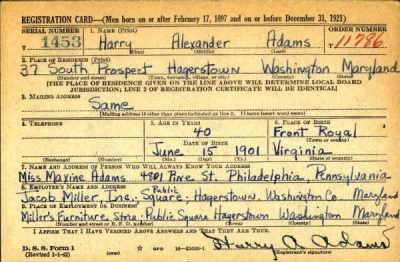 REGISTRATION CARD—(Men born on or after February 17, 1897 and on or before December 31, 1921)
SERIAL NUMBER 1. NAME (Print) ORDER NUMBER
1453 Harry Alexander Adams 11786
(First) (Middle) (Last)
2. PLACE OF RESIDENCE (Print)
37 South Prospect Hagerstown Washington Maryland
(Number and street) (Town, township, village, or city) (County) (State)
[THE PLACE OF RESIDENCE GIVEN ON THE LINE ABOVE WILL DETERMINE LOCAL BOARD
JURISDICTION; LINE 2 OF REGISTRATION CERTIFICATE WILL BE IDENTICAL]
3. MAILING ADDRESS
Same
[Mailing address if other than place indicated on line 2. If same insert word same]
4. TELEPHONE 5. AGE IN YEARS 6. PLACE OF BIRTH
40 Front Royal
DATE OF BIRTH (Town or county)
June 15 1901 Virginia
(Exchange) (Number) (Mo.) (Day) (Yr.) (State or country)
7. NAME AND ADDRESS OF PERSON WHO WILL ALWAYS KNOW YOUR ADDRESS
Miss Maxine Adams 4801 Pine St. Philadelphia, Pennsylvania
8. EMPLOYER'S NAME AND ADDRESS
Jacob Miller, Inc., Public Square, Hagerstown, Washington Co., Maryland
9. PLACE OF EMPLOYMENT OR BUSINESS
Miller's Furniture Store, Public Square Hagerstown Washington Maryland
(Number and street or R. F. D. number) (Town) (County) (State)
I AFFIRM THAT I HAVE VERIFIED ABOVE ANSWERS AND THAT THEY ARE TRUE.
D. S. S. Form 1
(Revised 1-1-42) (over)
Harry A Adams